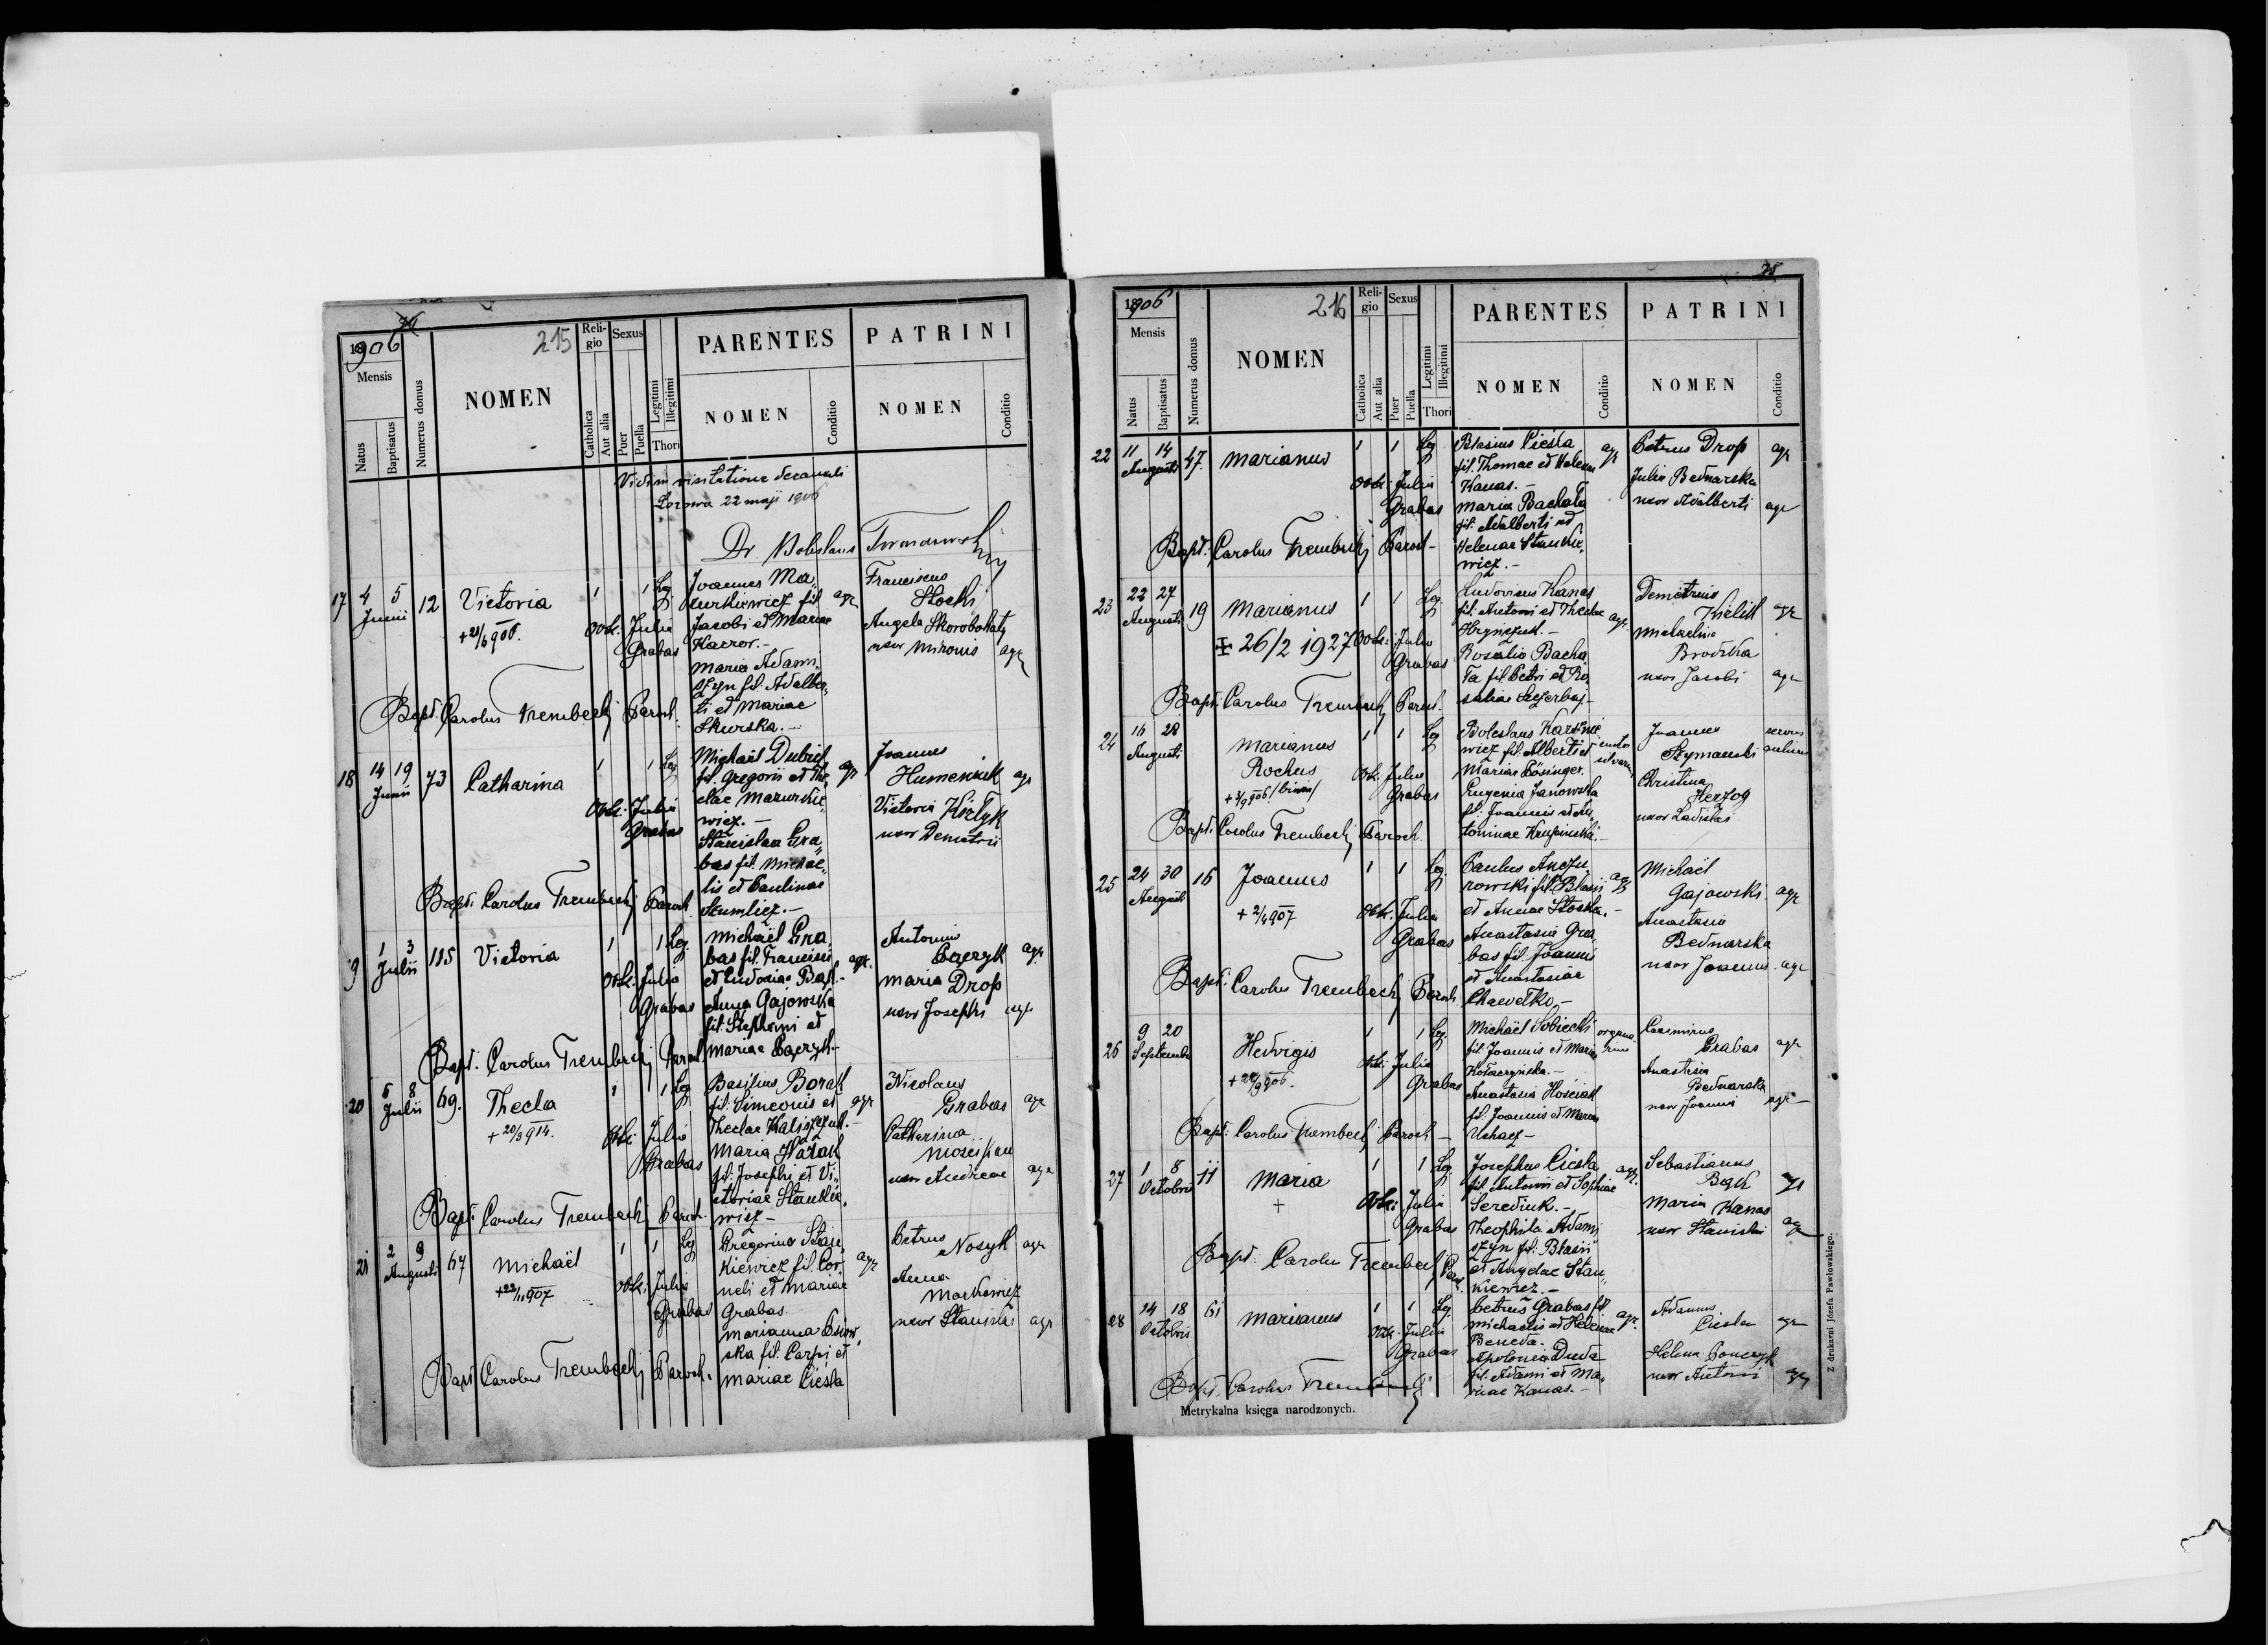 74
1906
215
Mensis
Natus
Baptisatus
Numerus domus
NOMEN
Reli-
gio
Catholica
Aut alia
Sexus
Puer
Puella
Legitimi
Illegitimi
Thori
PARENTES
NOMEN
Conditio
PATRINI
NOMEN
Conditio
Vidi in visitatione decanali
22 maji 1906
Dr Boleslaus
17 4 5 Junii 12 Victoria 1 1 Leg
Obst. Julia Grabas
Joannes Ma„
zurkiewicz fil. agr
Jacobi et Mariae
Maria Adam„
szyn fil. Adalber„
ti et Mariae
Skurska.-
Franciscus
Stocki
Angela Skorobohaty
uxor Mironis agr
Bapt. Carolus Trembecki Paroch.
18 14 19 Junii 73 Catharina 1 1 Leg
Obst. Julia Grabas
Michaël Dubiel
fil. Gregorii et The„ agr
clae Mazurkie„
wicz.-
Stanislaa Gra„
bas fil. Michae„
lis et Paulinae
Joannes
Humeniuk agr
Victoria Kiełyk
uxor Demetrii
Bapt. Carolus Trembecki Paroch.
19 1 3 Julii 115 Victoria 1 1 Leg.
Obst. Julia Grabas
Michaël Gra„
bas fil. Francisci agr.
Anna Gajowska
fil. Stephani et
Mariae
Antonius
agr
Maria Drop
uxor Josephi agr
Bapt. Carolus Trembecki Paroch
20 6 8 Julii 69. Thecla 1 1 Leg
+ 20/3 914.
Obst. Julia Grabas
Basilius Borak
fil. Simeonis et agr
Theclae Kaliszczuk.-
Maria
fil. Josephi et Vi„
ctoriae Stankie„
wicz-
Nicolaus
Grabas agr
Catharina
uxor Andreae agr
Bapt. Carolus Trembecki Paroch.
21 2 9 Augusti 67 Michaël 1 1 Leg
+22/11 907
Obst. Julia Grabas
Gregorius Stan„
kiewicz fil. Cor„ agr
neli et Mariae
Grabas.
Marianna
ska fil. Carpi et
Mariae Cieśla
Petrus
Nosyk agr
Anna
Mackowicz
uxor Stanislai agr
Bapt. Carolus Trembecki Paroch.
75
1906
216
Mensis
Natus
Baptisatus
Numerus domus
NOMEN
Reli-
gio
Catholica
Aut alia
Sexus
Puer
Puella
Legitimi
Illegitimi
Thori
PARENTES
NOMEN
Conditio
PATRINI
NOMEN
Conditio
22 11 14 Augusti 47. Marianus 1 1 Leg
Obst. Julia Grabas
Blasius Cieśla agr
fil. Thomae et Helenae
Kanas.-
Maria Bachała
fil. Adalberti et
Helenae Stankie„
wicz.-
Petrus Drop agr
Julia Bednarska
uxor Adalberti agr
Bapt. Carolus Trembecki Paroch-
23 22 27 Augusti 19 Marianus 1 1 Leg.
26/2 1927
Obst. Julia Grabas
Ludovicus Kanas
fil. Antoni et Theclae agr
Hryńczuk.-
Rosalia Bacha„
ła fil. Petri et Ro„
saliae
Demetrius
Kiełik agr
Michaelina
Brodzka
uxor Jacobi agr
Bapt. Carolus Trembecki Paroch.
24 16 28 Augusti Marianus Rochus 1 1 Leg
Obst. Julia Grabas
Boleslaus
wicz fil. Alberti et
Mariae Bösinger.
Eugenia Janowska
fil. Joannis et An„
toninae Krupinska.-
Joannes
Szymanski
Christina
Herzog
uxor Ladislai
Bapt. Carolus Trembecki Paroch
25 24 30 Augusti 16 Joannes 1 1 Leg.
+ 2/4 907
Obst. Julia Grabas
Paulus
rowski fil. Blasii agr
et Annae Stocka.-
Anastasia Gra„
bas fil. Joannis
et Anastasiae
Michaël
Gajowski agr
Anastasia
Bednarska
uxor Joannis agr
Bapt. Carolus Trembecki Paroch.
26 9 20 Septembr Hedvigis 1 1 Leg.
Obst. Julia Grabas
Michaël Sobiecki organa„
fil. Joannis et Mariae rius
Anastasia Hościak
fil. Joannis et Mariae
Casimirus
Grabas agr
Anastasia
Bednarska
uxor Joannis agr-
Bapt. Carolus Trembecki Paroch-
27 1 8 Octobris 11 Maria 1 1 Leg
+
Obst. Julia Grabas
Josephus Cieśla agr.
fil. Antoni et Sophiae
Serediuk.-
Theophila Adam„
szyn fil. Blasii
et Angelae Stan„
kiewicz.-
Sebastianus
agr
Maria Kanas
uxor Stanislai agr
Bapt. Carolus Trembecki Paroch.
28 14 18 Octobris 61 Marianus 1 1 Leg
Obst. Julia Grabas
Petrus Grabas fil. agr.
Michaelis et Helenae
Beneda.
Apolonia Duda
fil. Adami et Ma„
riae Kanas.-
Adamus
Cieśla agr
Helena
uxor Antoni agr
Bapt. Carolus Trembecki
Metrykalna księga narodzonych.
Z drukarni Józefa Pawłowskiego.